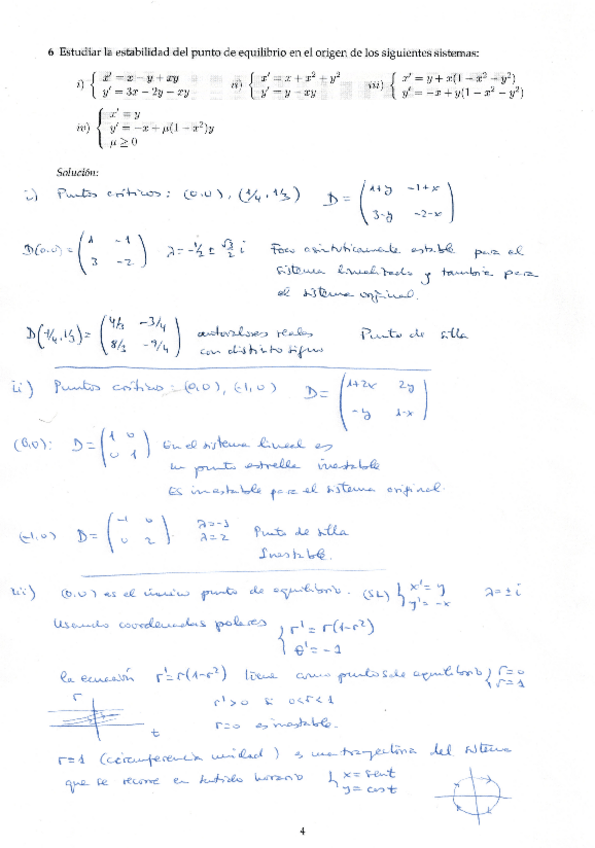 6 Estudiar la estabilidad del punto de equilibrio en el origen de los siguientes sistemas:
i) { x' = x − y + xy
y' = 3x − 2y − xy
ii) { x' = x + x² + y²
y' = y − xy
iii) { x' = y + x(1 − x² − y²)
y' = −x + y(1 − x² − y²)
iv) { x' = y
y' = −x + μ(1 − x²)y
μ ≥ 0
Solución:
i) Puntos críticos: (0,0), (1/4, 1/3) D = (1+y −1+x
3−y −2−x)
D(0,0) = (1 −1
3 −2) λ = −1/2 ± √3/2 i Foco asintóticamente estable para el
sistema linealizado y también para
el sistema original.
D(1/4, 1/3) = (4/3 −3/4
8/3 −9/4) autovalores reales
con distinto signo Punto de silla
ii) Puntos crítico: (0,0), (−1,0) D = (1+2x 2y
−y 1−x)
(0,0): D = (1 0
0 1) En el sistema lineal es
un punto estrella inestable
Es inestable para el sistema original.
(−1,0) D = (−1 0
0 2) λ=−1
λ=2 Punto de silla
Inestable.
iii) (0,0) es el único punto de equilibrio. (SL) { x' = y
y' = −x λ = ± i
Usando coordenadas polares { r' = r(1−r²)
θ' = −1
la ecuación r' = r(1−r²) tiene como puntos de equilibrio { r=0
r=1
r
t
r'>0 si 0<r<1
r=0 es inestable.
r=1 (circunferencia unidad) es una trayectoria del sistema
que se recorre en sentido horario { x = sen t
y = cos t
4